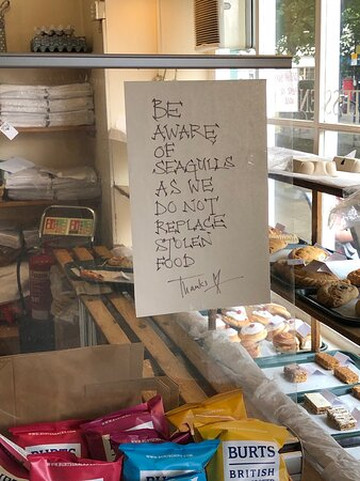 BE
AWARE
OF
SEAGULLS
AS WE
DO NOT
REPLACE
STOLEN
FOOD
Thanks
BURTS
BURTS
BRITISH